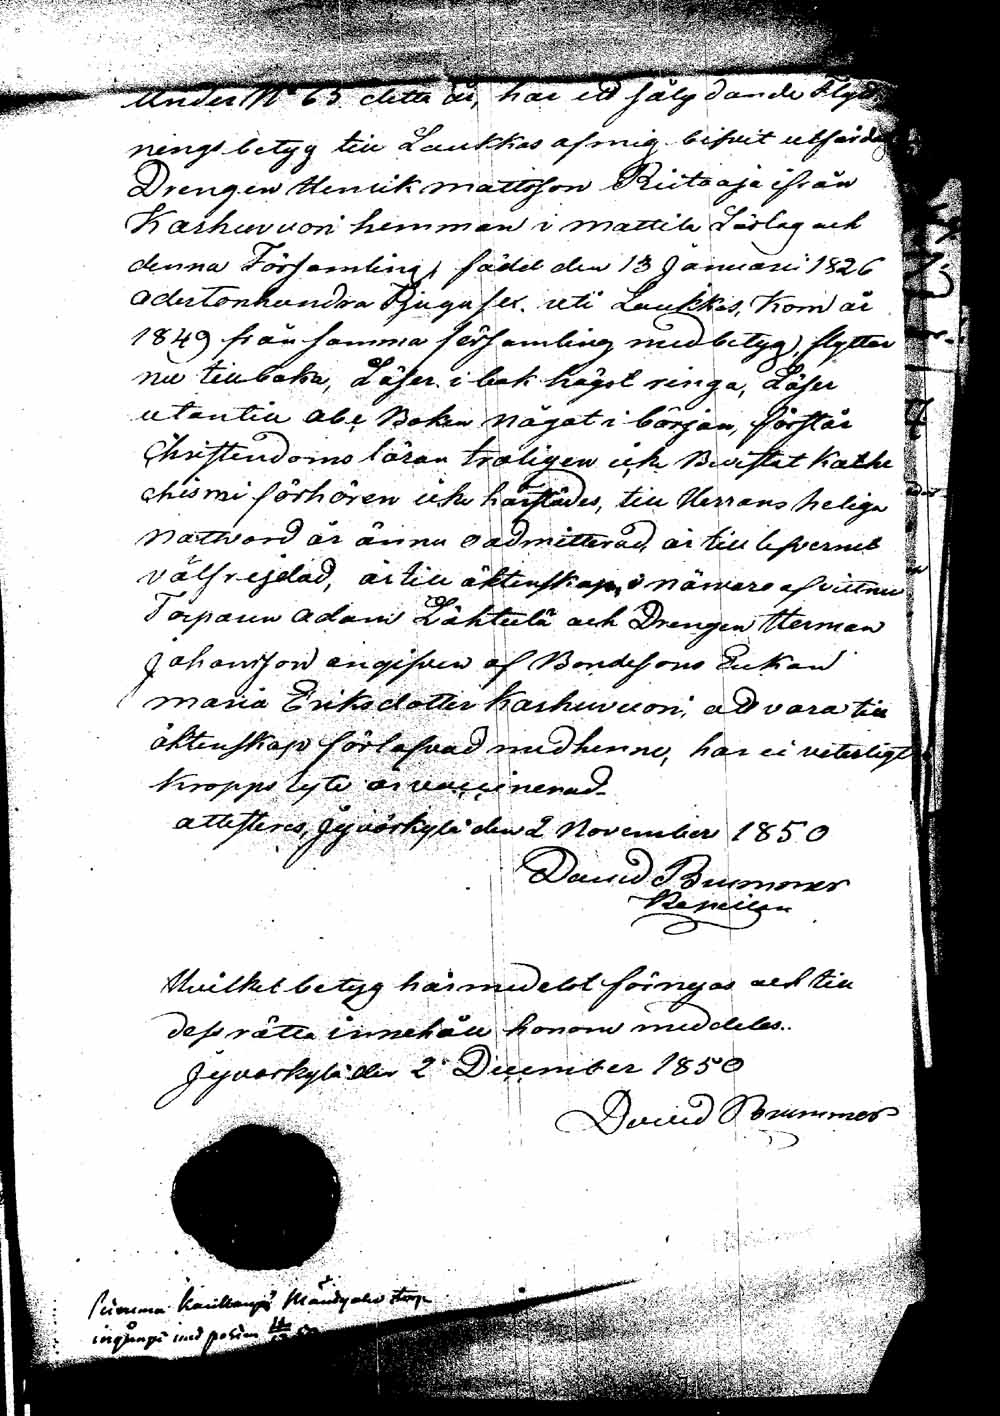 Under No 63 detta år, har ett följdande Flytt
ningsbetyg till Laukkas af mig blifvit utfärda
Drengen Henrik Mattsson Riitaaja ifrån
Kashuvuori hemman i Mattila Lärlag och
denna Församling, född den 13 Januari 1826
adertonhundra Tjugusex uti Laukkas, Kom år
1849 från samma församling med betyg, flyttar
nu tillbaka, Läser i bok högst ringa, Läser
utantill abc Boken något i början, förstår
Christendoms läran troligen icke Bevistat Kathe
chismi förhören icke härstädes, till Herrans heliga
Nattvard är ännu oadmitterad, är till lefvernet
välfrejdad, är till äktenskap, i närvaro af vittnen
Torparen Adam Lähteelä och Drengen Herman
Johansson angifven af Bondesons Enkan
Maria Eriksdotter Kashuvuori, att vara till
äktenskap förlofvad med henne, har ei veterligt
Kropps lyte är vaccinerad.
attesteras, Jyväskylä den 2 November 1850
David Brummer
Kapellan
Hvilket betyg härmedelst förnyas och till
dess rätta innehåll honom meddelas.
Jyväskylä den 2 December 1850
David Brummer
ingången med posten